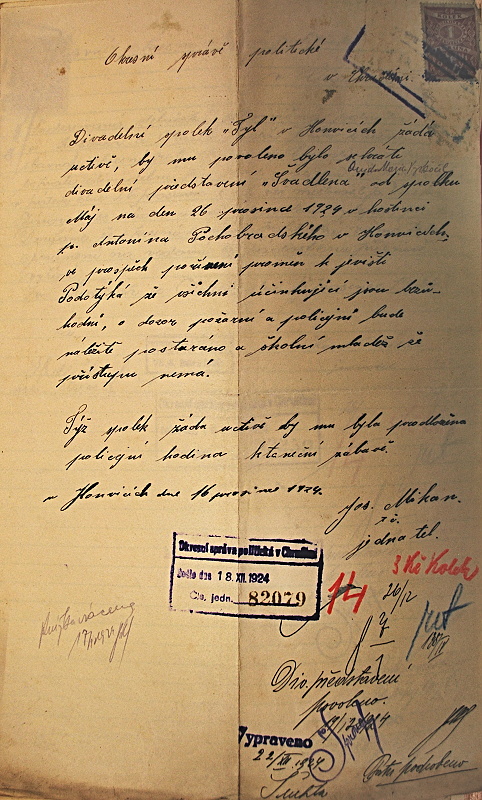 Okresní správě politické
v Chrudimi.
Divadelní spolek „Tyl" v Honvicích žádá
uctivě, by mu povoleno bylo sehráti
divadelní představení „Švadlena" od spolku
Máj na den 26 prosince 1924 v hostinci
p. Antonína Pochobradského v Honvicích,
ve prospěch pořízení proměn k jevišti
Podotýká že všichni účinkující jsou bezú-
hodní, o dozor požární a policejní bude
náležitě postaráno a školní mládež že
přístupu nemá.
Týž spolek žádá uctivě by mu byla prodloužena
policejní hodina k taneční zábavě.
v Honvicích dne 16 prosince 1924.
Jos. Mikan.
t. č.
jednatel.
Okresní správa politická v Chrudimi
Došlo dne 18. XII. 1924
Čís. jedn. 82079
14
3 Kč Kolek
26/12
Div. představení
povoleno.
Vypraveno
22/XII 1924